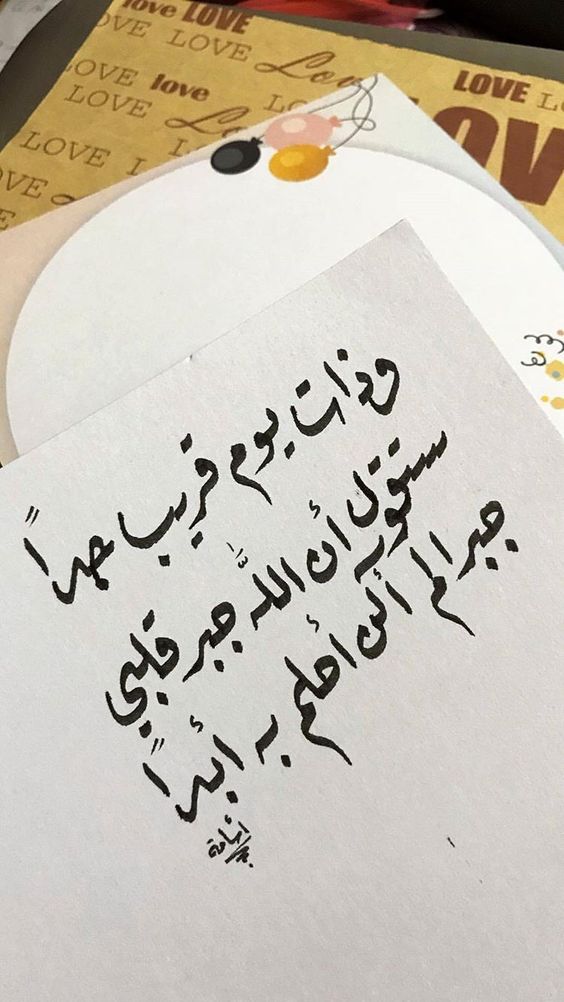 love LOVE
OVE LOVE LOVE Love
LOVE LO
OVE love
LOVE Lo LOVE
LOVE L
OV
VE
وذات يوم قريب جداً
ستقول أن اللَّه جبر قلبي
جبرالم ألن أحلم به أبداً